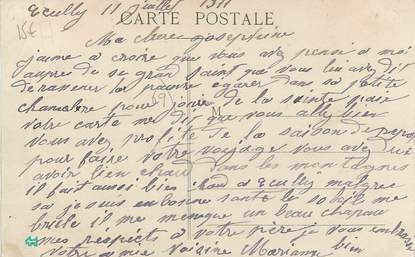 Ecully 11 juillet 1911
15€
CARTE POSTALE
Ma chere josephine
jaime a croire que vous avez pensé a moi
aupres de se grand saint que vous lui avez dit
de ramener la pauvre egarer dans sa petite
chambre pour jouir de la sainte paix
votre carte me dit que vous allez bien
vous avez profité de la saison de repos
pour faire votre voyage vous avez du
avoir bien chaud dans les montagnes
il fait aussi bien chaud a Ecully malgree
sa je suis en bonne santé le soleil me
brule il me menque un beau chapau
mes respects a votre père je vous embrasse
votre amie voisine Marianne bien